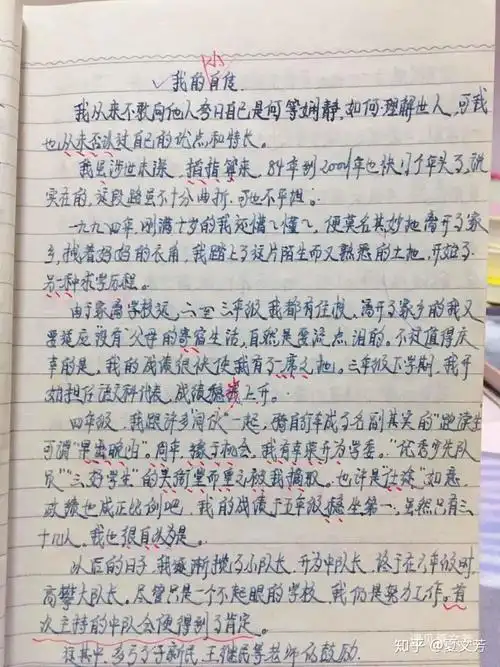 小
我的自传
我从来不敢向他人夸自己是何等娴静,如何理解世人,可我
也从来否决过自己的优点和特长。
我虽涉世未深,掐指算来,84年到2001年也快17个年头了,说
实在的,这段路虽不十分曲折,可也不平坦。
一九九四年,刚满十岁的我还懵懵懂懂,便莫名其妙地离开了家
乡,拽着妈妈的衣角,我踏上了这片陌生而又熟悉的土地,开始了
另一种求学历程。
由于家离学校远,二至三年级我都有住校,离开了家乡的我又
要适应没有父母的寄宿生活,自然是要流点泪的。不过值得庆
幸的是,我的成绩很快使我有了一席之地。三年级下学期,我开
始担任语文科代表,成绩稳我上升。
四年级,我跟许多"同伙"一起,骑自行车成了名副其实的"跑读生
可谓"早出晚归"。周年,缘于机会,我有幸荣升为学委。"优秀少先队
员""三好学生"的头衔堂而皇之被我摘取。也许是"仕途"如意,
政绩也成正比例吧,我的成绩于五年级稳坐第一,虽然只有三
十几人,我也很自以为是。
以后的日子,我逐渐揽了小队长,升为中队长,终于在六年级时,
高攀大队长。尽管只是一个不起眼的学校,我仍是努力工作。首
次主持的中队会便得到了肯定。
王继民等老师的鼓励
知乎 @夏文芳